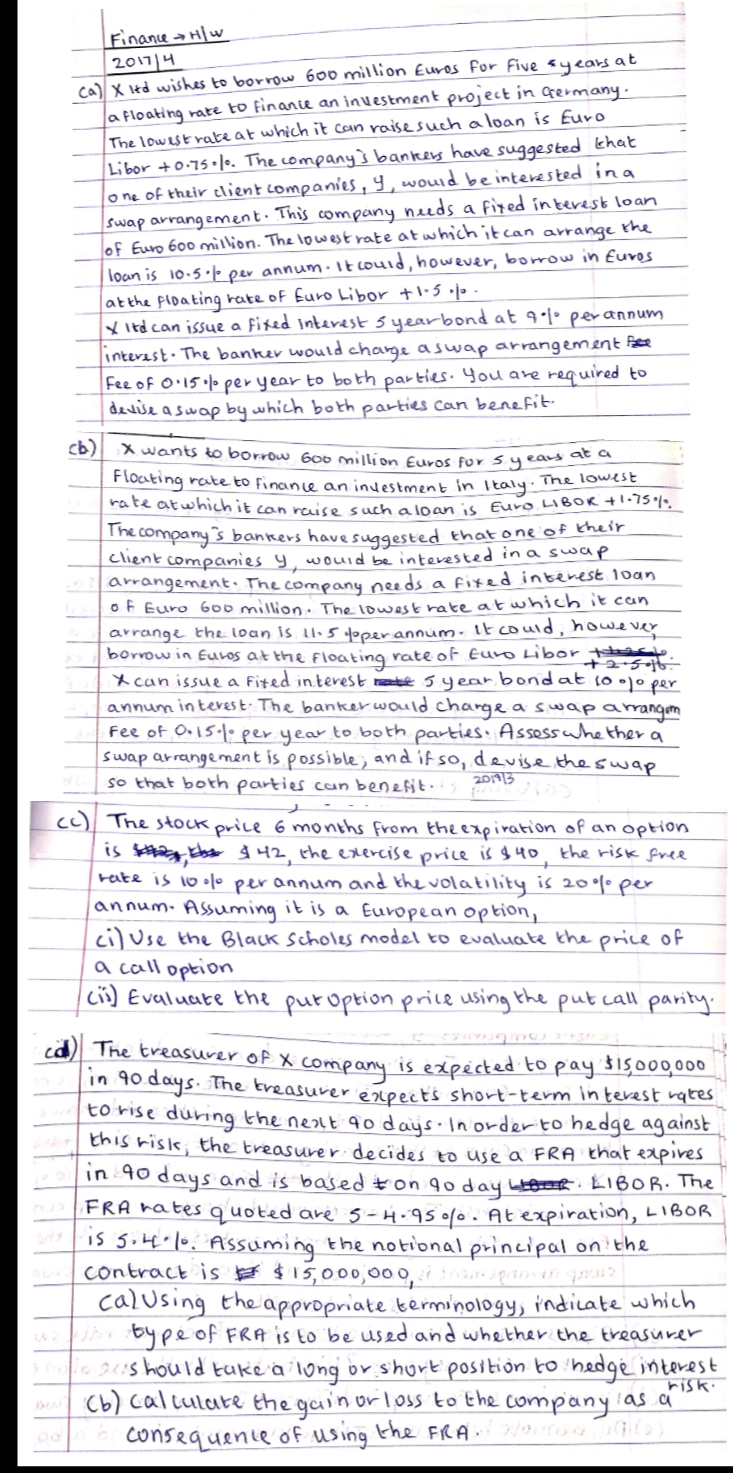 Finance → H/W
2017/4
(a) X ltd wishes to borrow 600 million Euros for five years at
a floating rate to finance an investment project in Germany.
The lowest rate at which it can raise such a loan is Euro
Libor +0.75%. The company's bankers have suggested that
one of their client companies, Y, would be interested in a
swap arrangement. This company needs a fixed interest loan
of Euro 600 million. The lowest rate at which it can arrange the
loan is 10.5% per annum. It could, however, borrow in Euros
at the floating rate of Euro Libor +1.5%.
X ltd can issue a fixed interest 5 year bond at 9% per annum
interest. The banker would charge a swap arrangement
fee of 0.15% per year to both parties. You are required to
devise a swap by which both parties can benefit.
(b) X wants to borrow 600 million Euros for 5 years at a
floating rate to finance an investment in Italy. The lowest
rate at which it can raise such a loan is Euro LIBOR +1.75%.
The company's bankers have suggested that one of their
client companies Y, would be interested in a swap
arrangement. The company needs a fixed interest loan
of Euro 600 million. The lowest rate at which it can
arrange the loan is 11.5% per annum. It could, however,
borrow in Euros at the floating rate of Euro Libor
+2.5%.
X can issue a fixed interest 5 year bond at 10% per
annum interest. The banker would charge a swap arrangem
fee of 0.15% per year to both parties. Assess whether a
swap arrangement is possible, and if so, devise the swap
so that both parties can benefit. 2019/3
(c) The stock price 6 months from the expiration of an option
is $42, the exercise price is $40, the risk free
rate is 10% per annum and the volatility is 20% per
annum. Assuming it is a European option,
(i) Use the Black Scholes model to evaluate the price of
a call option
(ii) Evaluate the put option price using the put call parity.
(d) The treasurer of X company is expected to pay $15,000,000
in 90 days. The treasurer expects short-term interest rates
to rise during the next 90 days. In order to hedge against
this risk, the treasurer decides to use a FRA that expires
in 90 days and is based on 90 day LIBOR. The
FRA rates quoted are 5-4.95%. At expiration, LIBOR
is 5.4%. Assuming the notional principal on the
contract is $15,000,000,
(a) Using the appropriate terminology, indicate which
type of FRA is to be used and whether the treasurer
should take a long or short position to hedge interest
risk.
(b) Calculate the gain or loss to the company as a
consequence of using the FRA.